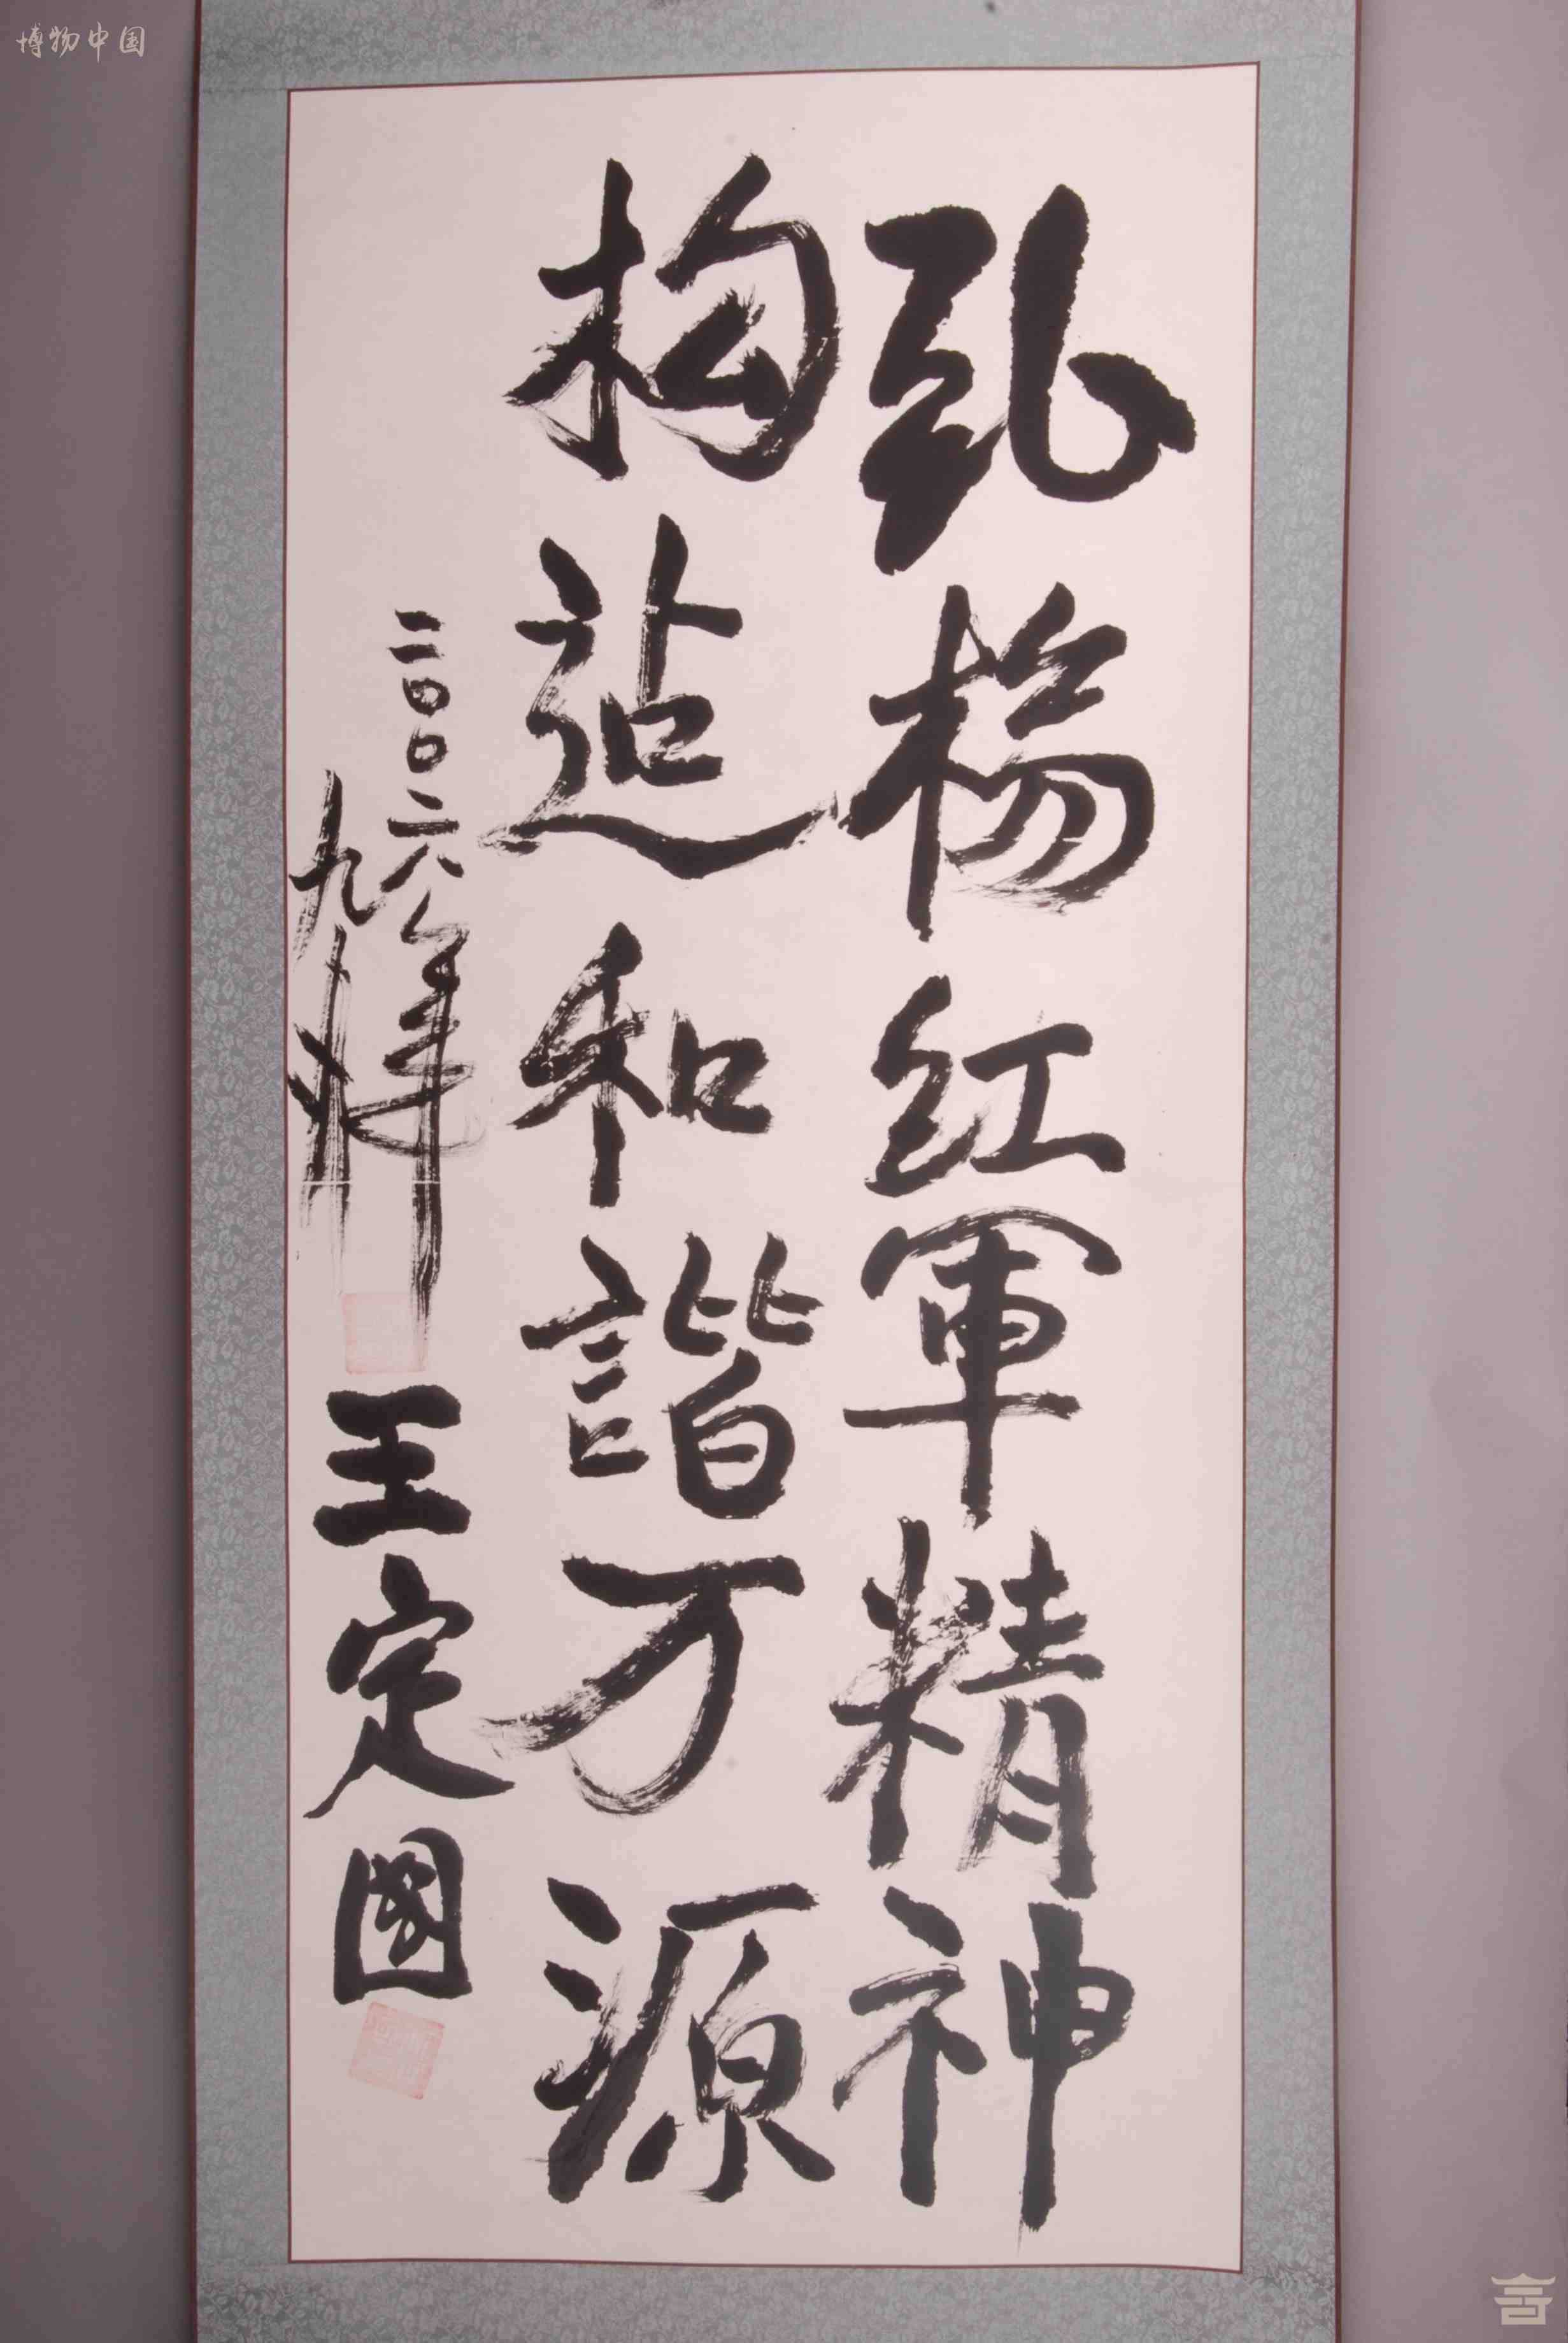 博物中国
弘楊红軍精神
构造和諧万源
二〇〇六年
九
王定國